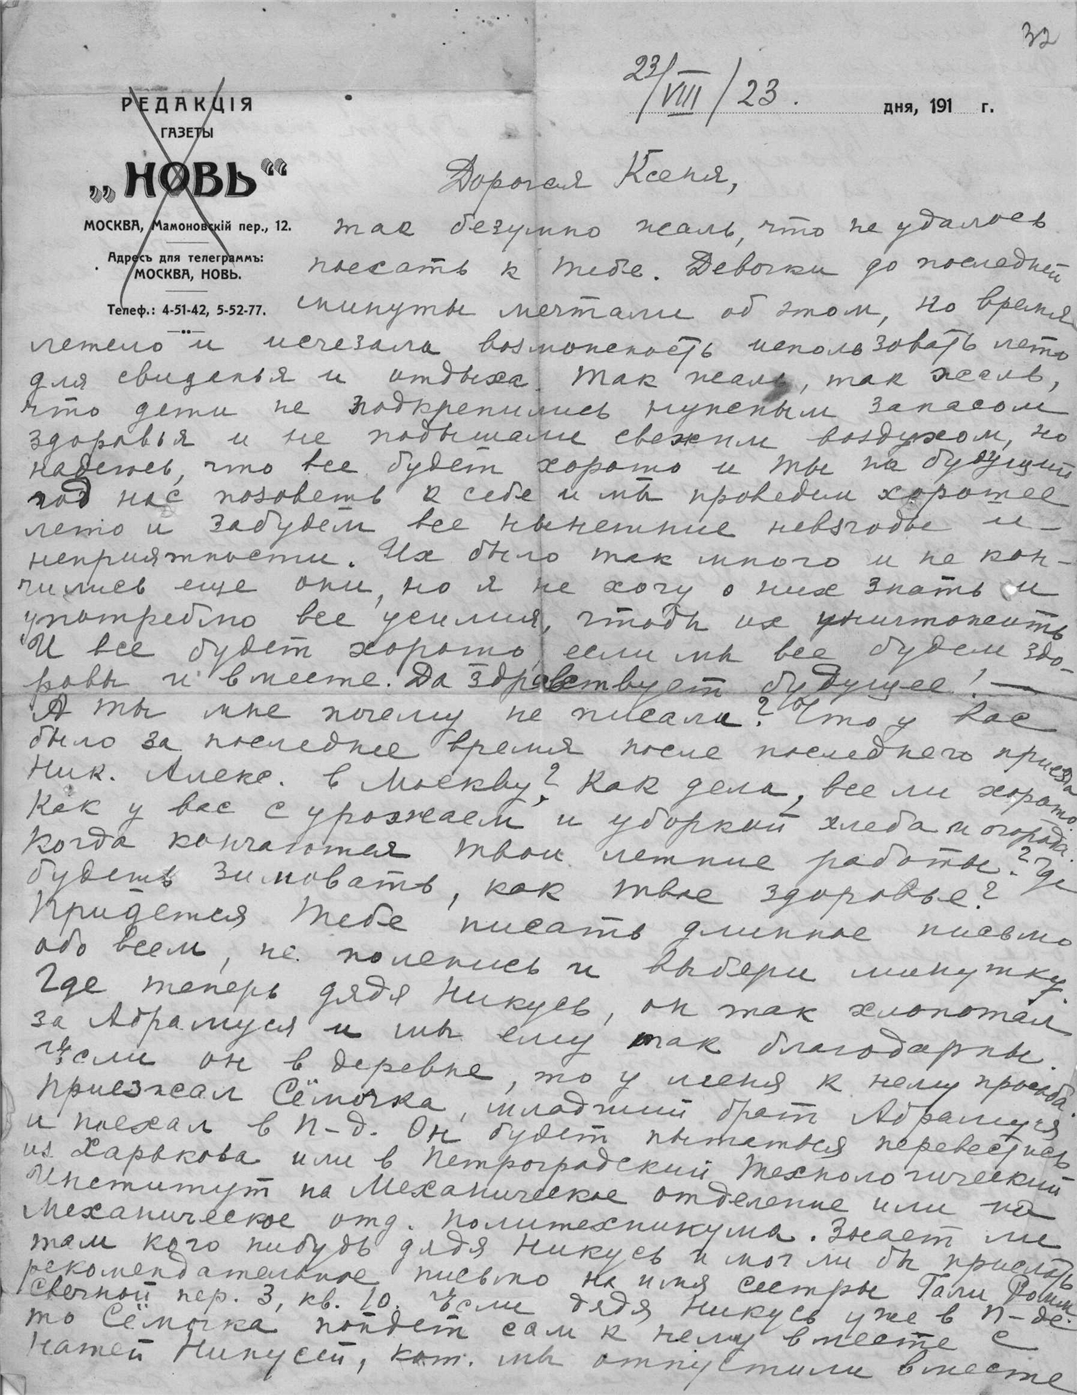 32
23/VIII/23. дня, 191 г.
РЕДАКЦІЯ
ГАЗЕТЫ
„НОВЬ“
МОСКВА, Мамоновскій пер., 12.
Адресъ для телеграммъ:
МОСКВА, НОВЬ.
Телеф.: 4-51-42, 5-52-77.
Дорогая Ксеня,
так безумно жаль, что не удалось
поехать к тебе. Девочки до последней
минуты мечтали об этом, но время
летело и исчезала возможность использовать лето
для свиданья и отдыха. Так жаль, так жаль,
что дети не подкрепились нужным запасом
здоровья и не подышали свежим воздухом, но
надеюсь, что все будет хорошо и ты на будущий
год нас позовешь к себе и мы проведем хорошее
лето и забудем все нынешние невзгоды и
неприятности. Их было так много и не кон-
чились еще они, но я не хочу о них знать и
употреблю все усилия, чтобы их уничтожить
И все будет хорошо, если мы все будем здо-
ровы и вместе. Да здравствует будущее! —
А ты мне почему не писала? Что у вас
было за последнее время после последнего приезда
Ник. Алекс. в Москву? Как дела, все ли хорошо.
Как у вас с урожаем и уборкой хлеба и огорода.
Когда кончаются твои летние работы? Где
будешь зимовать, как твое здоровье?
Придется тебе писать длинное письмо
обо всем, не поленись и выбери минутку.
Где теперь дядя Никусь, он так хлопотал
за Абрамуся и мы ему так благодарны.
Если он в деревне, то у меня к нему просьба.
Приезжал Сёмочка, младший брат Абрамуся
и поехал в П-д. Он будет пытаться перевестись
из Харькова или в Петроградский Технологический
Институт на Механическое отделение или на
Механическое отд. Политехникума. Знает ли
там кого нибудь дядя Никусь и мог ли бы прислать
рекомендательное письмо на имя сестры Гали
Свечной пер. 3, кв. 10. Если дядя Никусь уже в П-де
то Сёмочка пойдет сам к нему вместе с
нашей Никусей, кот. мы отпустили вместе